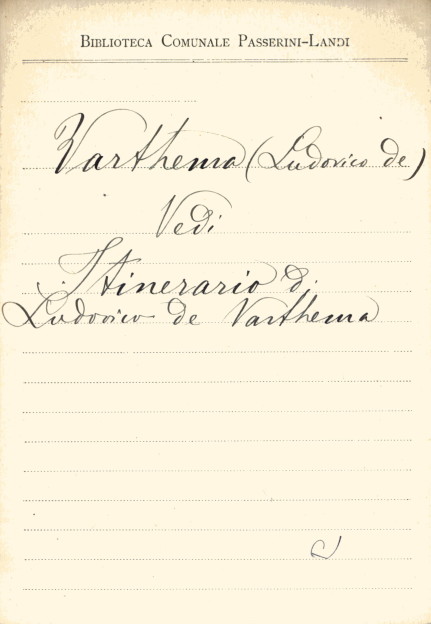 BIBLIOTECA COMUNALE PASSERINI-LANDI
Varthema (Ludovico de)
Vedi
Itinerario di
Ludovico de Varthema